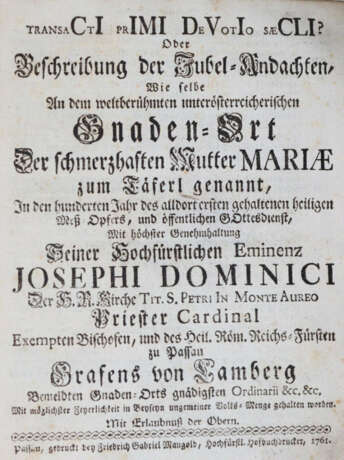 TRANSACTI PRIMI DEVOTIO SÆCLI?
Oder
Beschreibung der Jubel-Andachten,
Wie selbe
An dem weltberühmten unterösterreicherischen
Gnaden-Ort
Der schmerzhaften Mutter MARIÆ
zum Täferl genannt,
In den hunderten Jahr des alldort ersten gehaltenen heiligen
Meß Opfers, und öffentlichen GOttesdienst,
Mit höchster Genehmhaltung
Seiner Hochfürstlichen Eminenz
JOSEPHI DOMINICI
Der H. R. Kirche TIT. S. PETRI IN MONTE AUREO
Priester Cardinal
Exempten Bischofen, und des Heil. Röm. Reichs-Fürsten
zu Passau
Grafens von Lamberg
Bemeldten Gnaden-Orts gnädigsten Ordinarii &c. &c.
Mit möglichster Feyerlichkeit in Beyseyn ungemeiner Volks-Menge gehalten worden.
Mit Erlaubnuß der Obern.
Passau, gedruckt bey Friedrich Gabriel Mangold, Hochfürstl. Hofbuchdrucker, 1761.